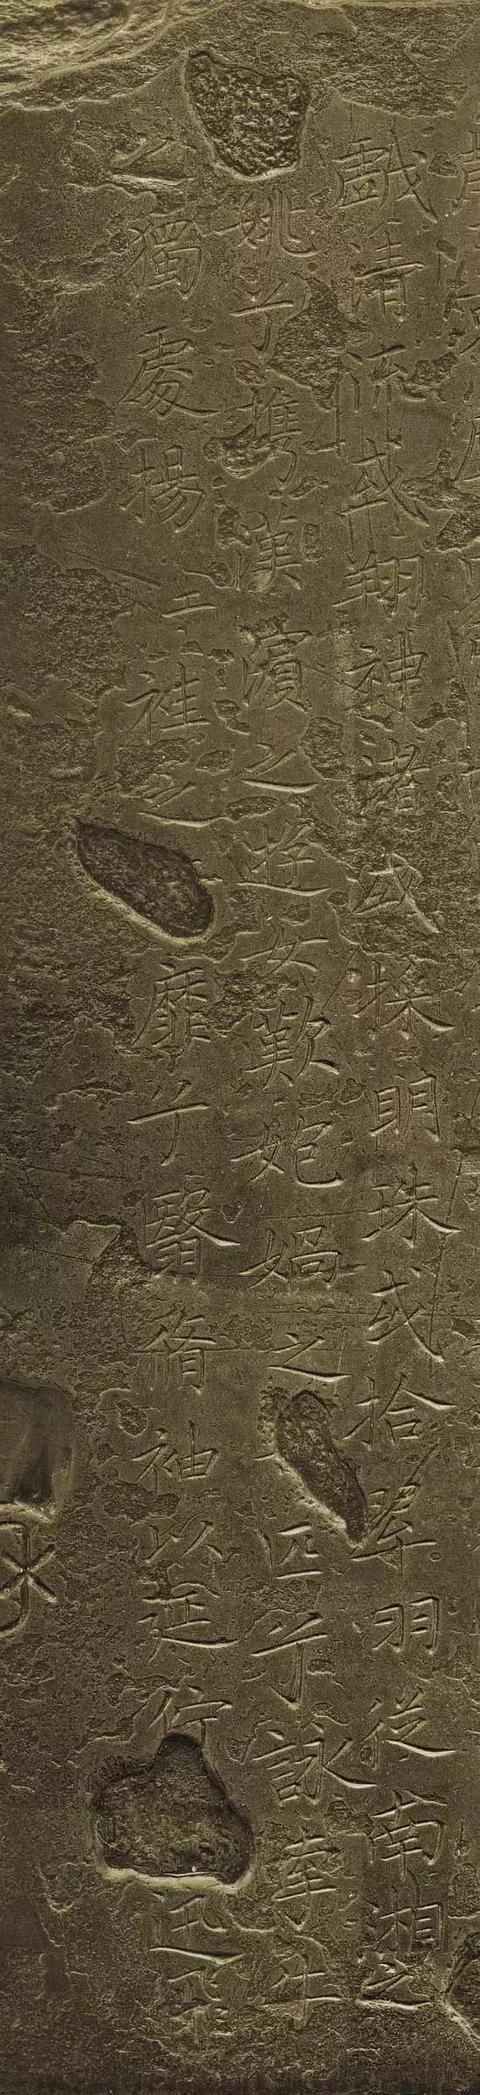 戲清流或翔神渚或採明珠或拾翠羽從南湘之
姚兮携漢濱之遊女歎妑媧之匹兮詠牽牛
之獨處揚袿之靡兮翳脩袖以延佇迅飛